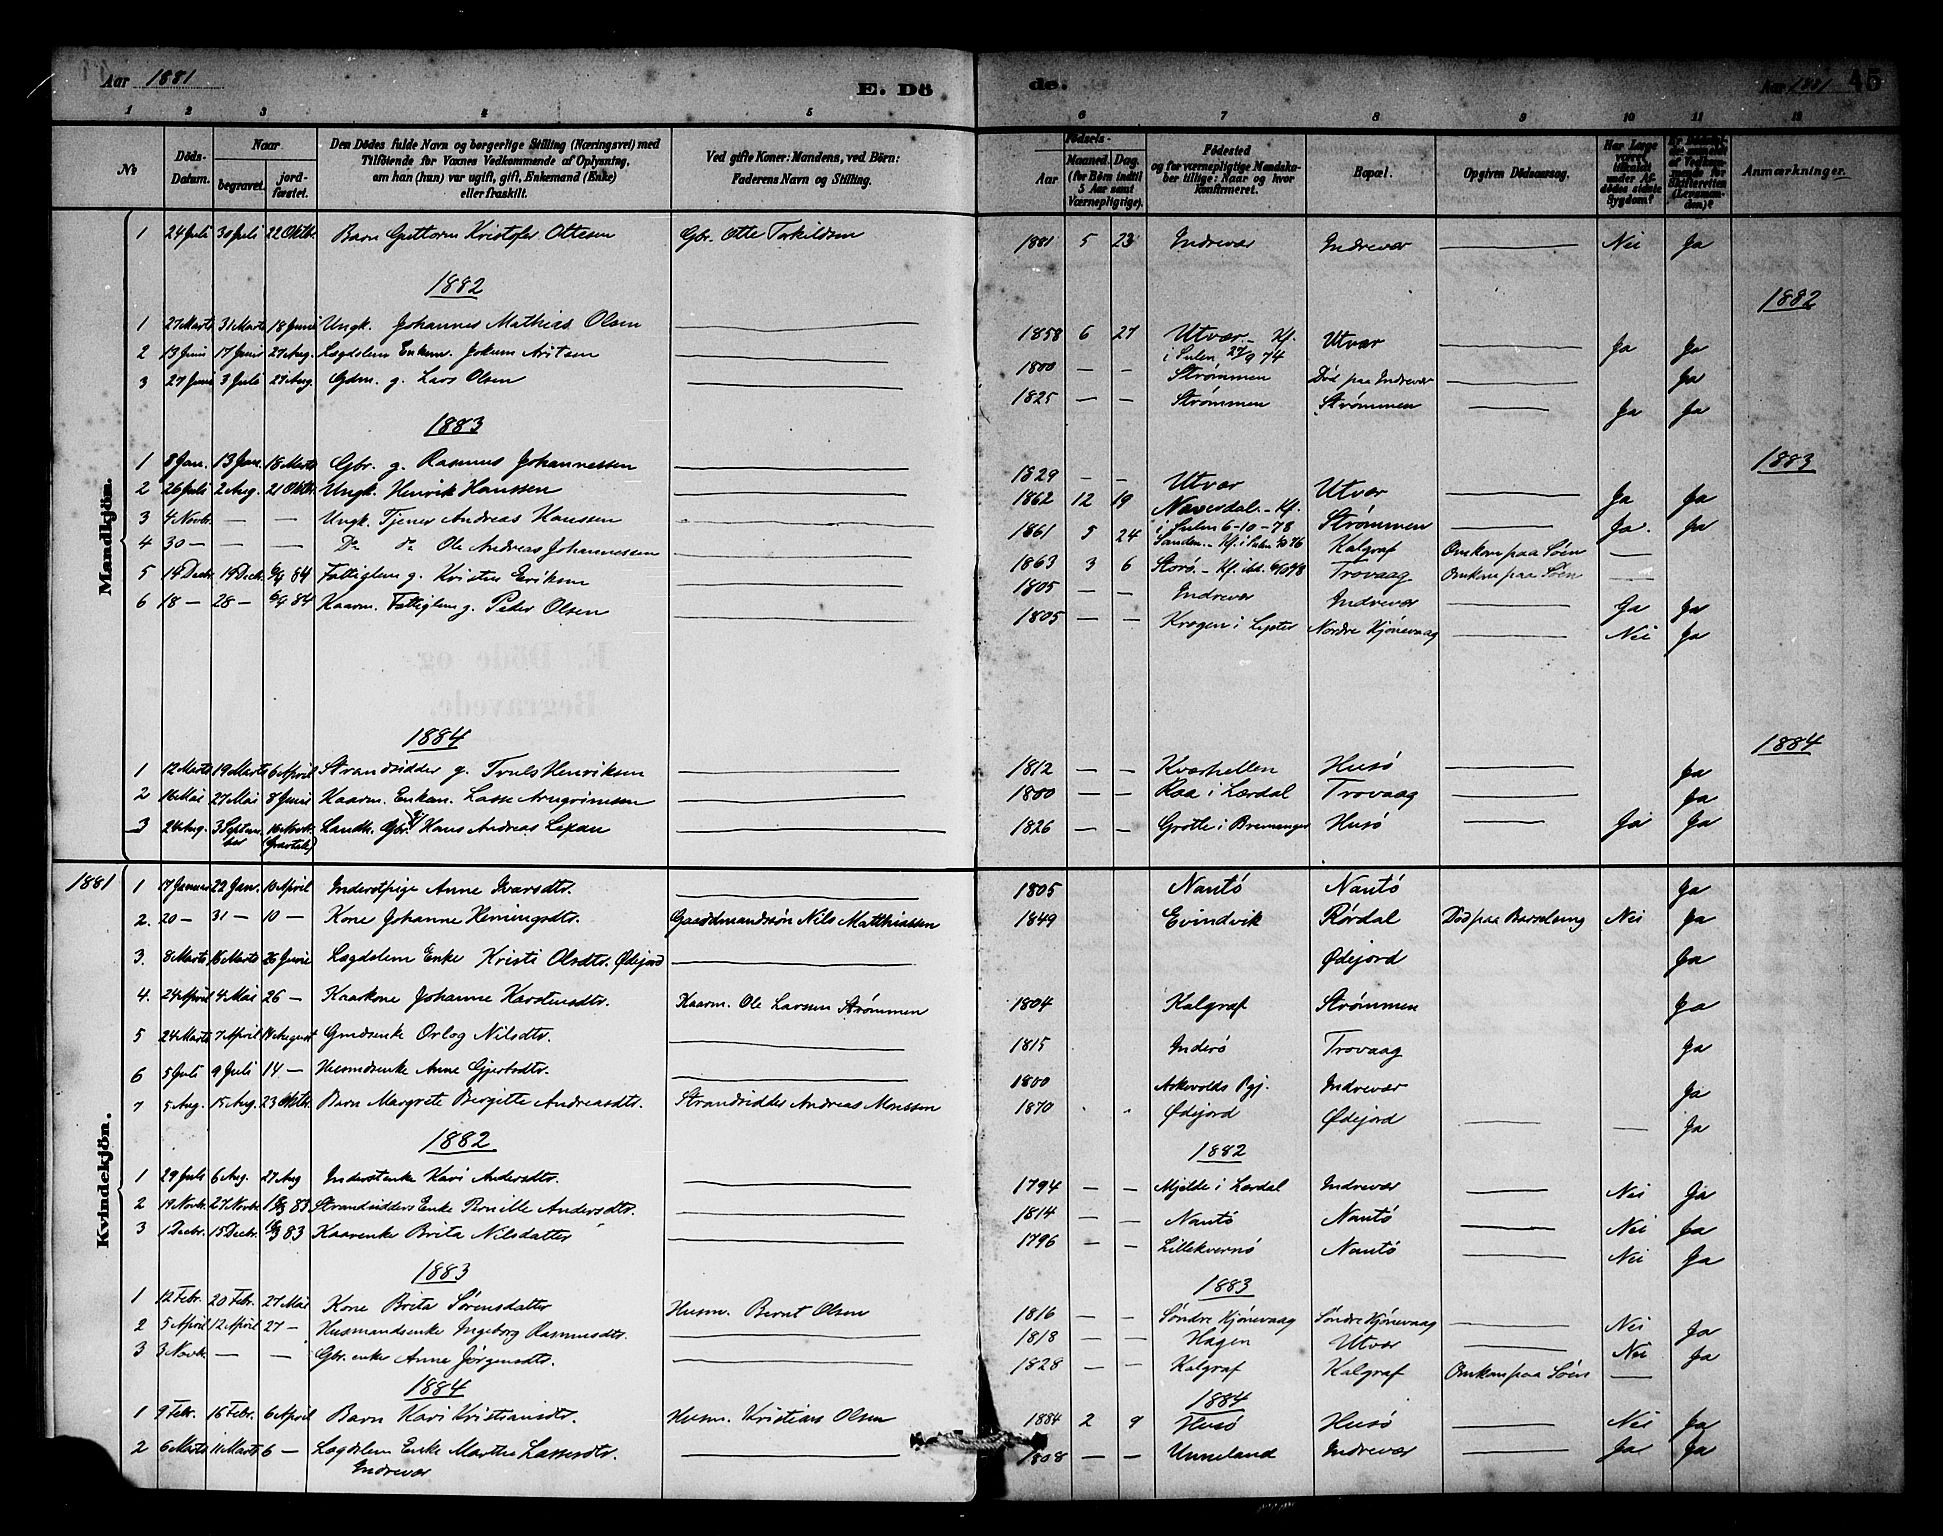 Aar 1881 E. Dö de. Aar 1881 45
1 2 3 4 5 6 7 8 9 10 11 12
No
Döds-Datum.
Naar
begravet.
jordfæstet.
Den Dödes fulde Navn og borgerlige Stilling (Næringsvei) med Tilföiende for Voxnes Vedkommende af Oplysning, om han (hun) var ugift, gift, Enkemand (Enke) eller fraskilt.
Ved gifte Koner: Mandens, ved Börn: Faderens Navn og Stilling.
Födsels-
Aar
Maaned. Dag.
(for Börn indtil 5 Aar samt Værnepligtige).
Födested og for værnepligtige Mandskaber tillige: Naar og hvor konfirmeret.
Bopæl.
Opgiven Dödsaarsag.
Har Læge været tilkaldt under Afdödes sidste Sygdom?
Anmærkninger.
Mandkjön.
1 24 Juli 30 Juli 22 Oktbr. Barn Guttorm Kristofer Ottesen Gbr. Otte Terkildsen 1881 5 23 Indrevær Indrevær — Nei Ja
1882 1882
1 27 Marts 31 Marts 18 Juni Ungk. Johannes Mathias Olsen — 1858 6 27 Utvær - Kf. i Sulen 27/9 74 Utvær — Ja Ja
2 13 Juni 17 Juni 27 Aug. Lægdslem Enkem. Jokum — 1800 — — Strømmen Död paa Indrevær — Ja
3 27 Juni 3 Juli 27 Aug. Gdm. g. Lars Olsen — 1825 — — Strømmen Strømmen — Ja Ja
1883 1883
1 8 Jan. 13 Jan. 18 Marts Gbr. g. Rasmus Johannessen — 1829 — — Utvær Utvær — Ja Ja
2 26 Juli 2 Aug. 21 Oktbr. Ungk. Henrik Hanssen — 1862 12 19 Naversdal - Kf. i Sulen 6-10-78 Strømmen — Ja. Ja
3 4 Novbr. — — Ungk. Tjener Andreas Hanssen — 1861 5 24 Sanden - Kf. i Sulen 76 Kalgraf Omkom paa Söen —
4 30 — — — Do do Ole Andreas Johannessen — 1863 3 6 Storö - Kf. ibd. Trovaag Omkom paa Söen —
5 14 Decbr. 19 Decb. 6/4 84 Fattiglem g. Kristen Eriksen — 1805 — — Indrevær Indrevær — Ja Ja
6 18 — 28 — 6/4 84 Kaarm. Fattiglem g. Peder Olsen — 1805 — — Krogen i Lyster Nordre Hjönevaag — Nei Ja
1884 1884
1 12 Marts 19 Marts 6 April Strandsidder g. Truls Henriksen — 1812 — — Kværhellen Husö — Ja
2 16 Mai 27 Mai 8 Juni Kaarm. Enkem. Lasse Arngrimsen — 1800 — — Raa i Lærdal Trovaag — Ja
3 24 Aug. 3 September 16 Novbr. (Gravtale) Landh. Gbr. g/ Hans Andreas Lexau — 1826 — — Grotle i Bremanger Husö — Ja Ja
Kvindekjön.
1881 1 17 Januar 22 Jan. 10 April Inderstpige Anne Ivarsdtr. — 1805 Nautö Nautö Ja
2. 20 — 31 — 10 — Kone Johanne Hemingsdtr. Gaardmandssön Nils Matthiassen 1849 Evindvik Rördal Död paa Barselseng Nei Ja
3. 8 Marts 16 Marts 26 Juni Lægdslem Enke Kristi Olsdtr. Ødejord — Ødejord Ja
4. 24 April 4 Mai 26 — Kaarkone Johanne Karstensdtr. Kaarm. Ole Larsen Strømmen 1804 Kalgraf Strømmen Ja
5 24 Marts 7 April 14 August Gmdsenke Orlog Nilsdtr. — 1815 Inderö Trovaag Ja
6 5 Juli 9 Juli 14 — Husmdsenke Anne Gjertsdtr. — 1800 Askevolds Pgj. Indrevær Ja
7 5 Aug. 15 Aug. 23 Oktbr. Barn Margrete Birgitte Andreasdtr. Strandsidder Andreas Monssen 1870 Ødejord Ødejord — — Ja
1882 1882
1 29 Juli 6 Aug. 27 Aug Inderstenke Kari Andersdtr. — 1794 — — Mjelde i Lærdal Indrevær — Nei Ja
2 19 Novbr. 27 Novbr. 18/3 83 Strandsidders Enke Pernille Andersdtr. — 1814 — — Nautö Nautö — Nei Ja
3 1 Decbr. 15 Decbr. 18/3 83 Kaarenke Brita Nilsdatter — 1796 — — Lillekvernö Nautö — Nei Ja
1883 1883
1 12 Febr. 20 Febr. 27 Mai Kone Brita Sörensdatter Husm. Bernt Olsen 1816 — — Söndre Hjönevaag Söndre Hjönevaag — Nei Ja
2 5 April 12 April 27 — Husmandsenke Ingeborg Rasmusdtr. — 1818 — — Hagen Utvær — Nei Ja
3 3 Novbr. — — Gbr. enke Anne Jörgensdtr. — 1828 — — Kalgraf Kalgraf Omkom paa Söen —
1884 1884
1 9 Febr. 16 Febr. 6 April Barn Kari Kristiansdtr. Husm. Kristian Olsen 1884 2 9 Husö Husö — Nei Ja
2 6 Marts 11 Marts 6 — Lægdslem Enke Marthe Lassesdtr. Indrevær — 1808 — — Unneland Indrevær — Ja Ja